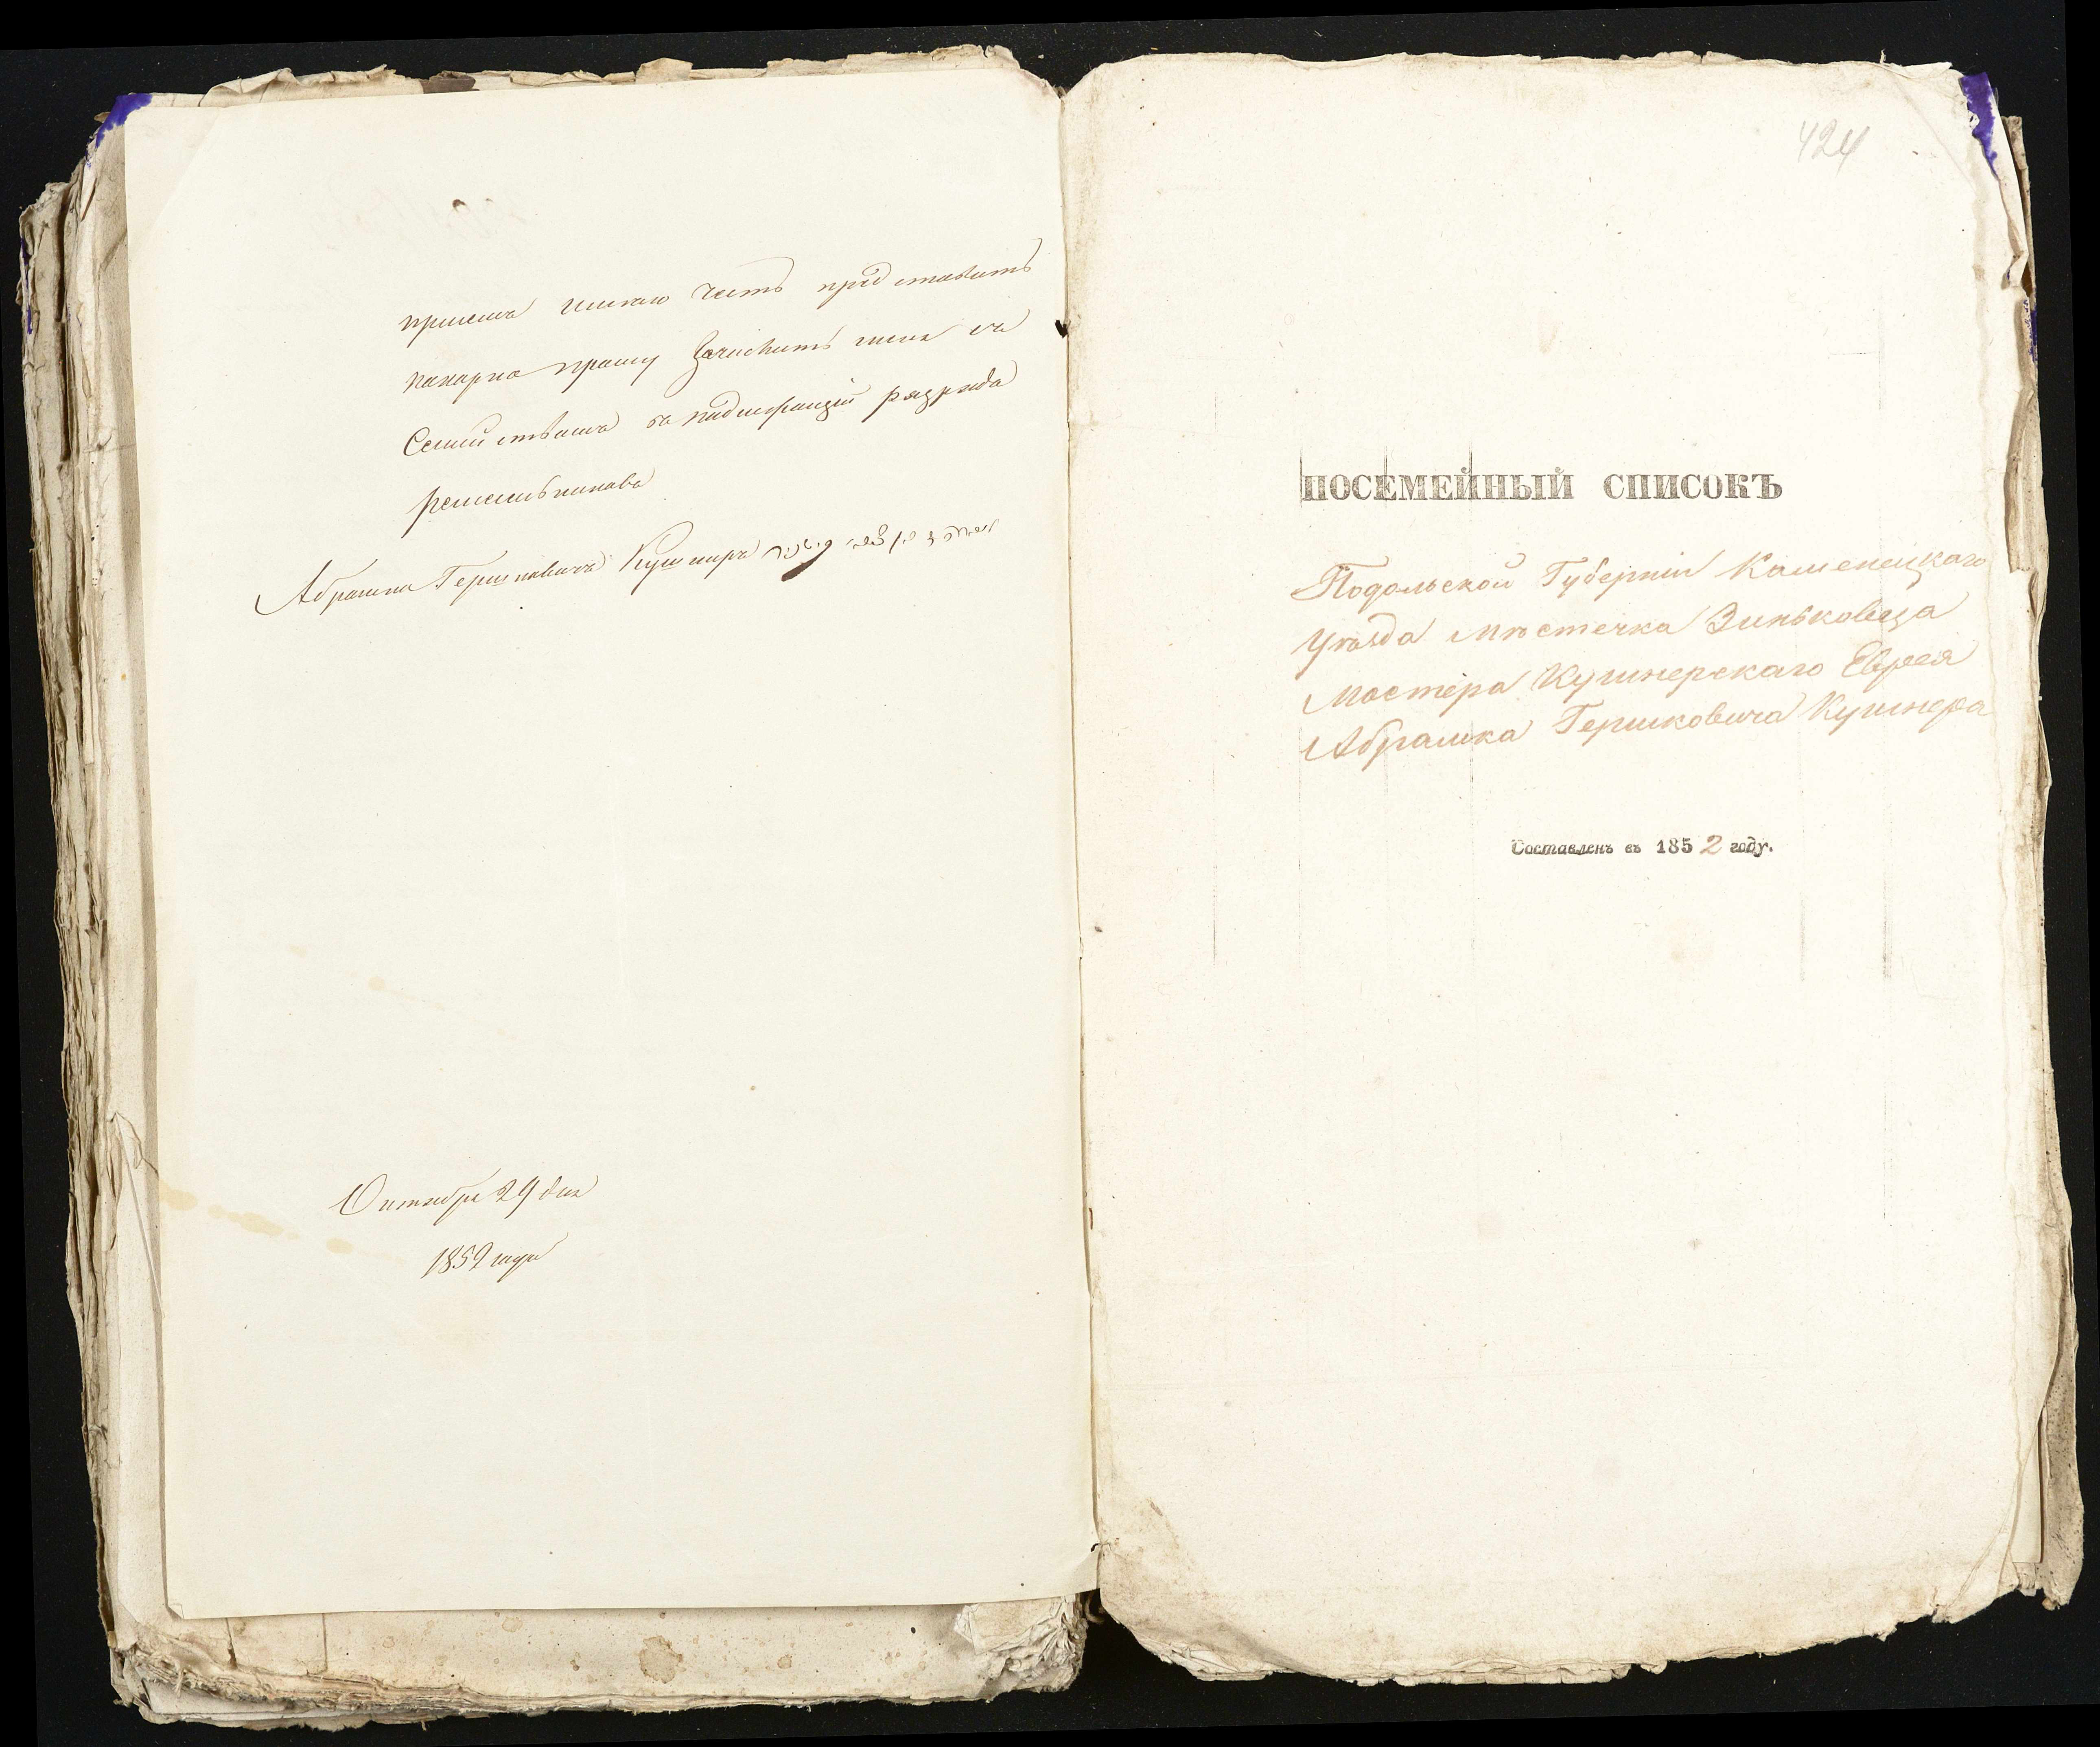 присемъ имѣю честь представить
пакорно прошу Зачислить меня съ
Семействомъ въ надлежащій разряда
ремесльникавъ
Абрамка Гершковичъ Кушниръ
Октября 29 дня
1852 года
424
ПОСЕМЕЙНЫЙ СПИСОКЪ
Подольской Губерніи Каменецкаго
Уѣзда Мѣстечка Зиньковеца
Мастера Кушнерскаго Еврея
Абрамка Гершковича Кушнера
Составленъ въ 1852 году.